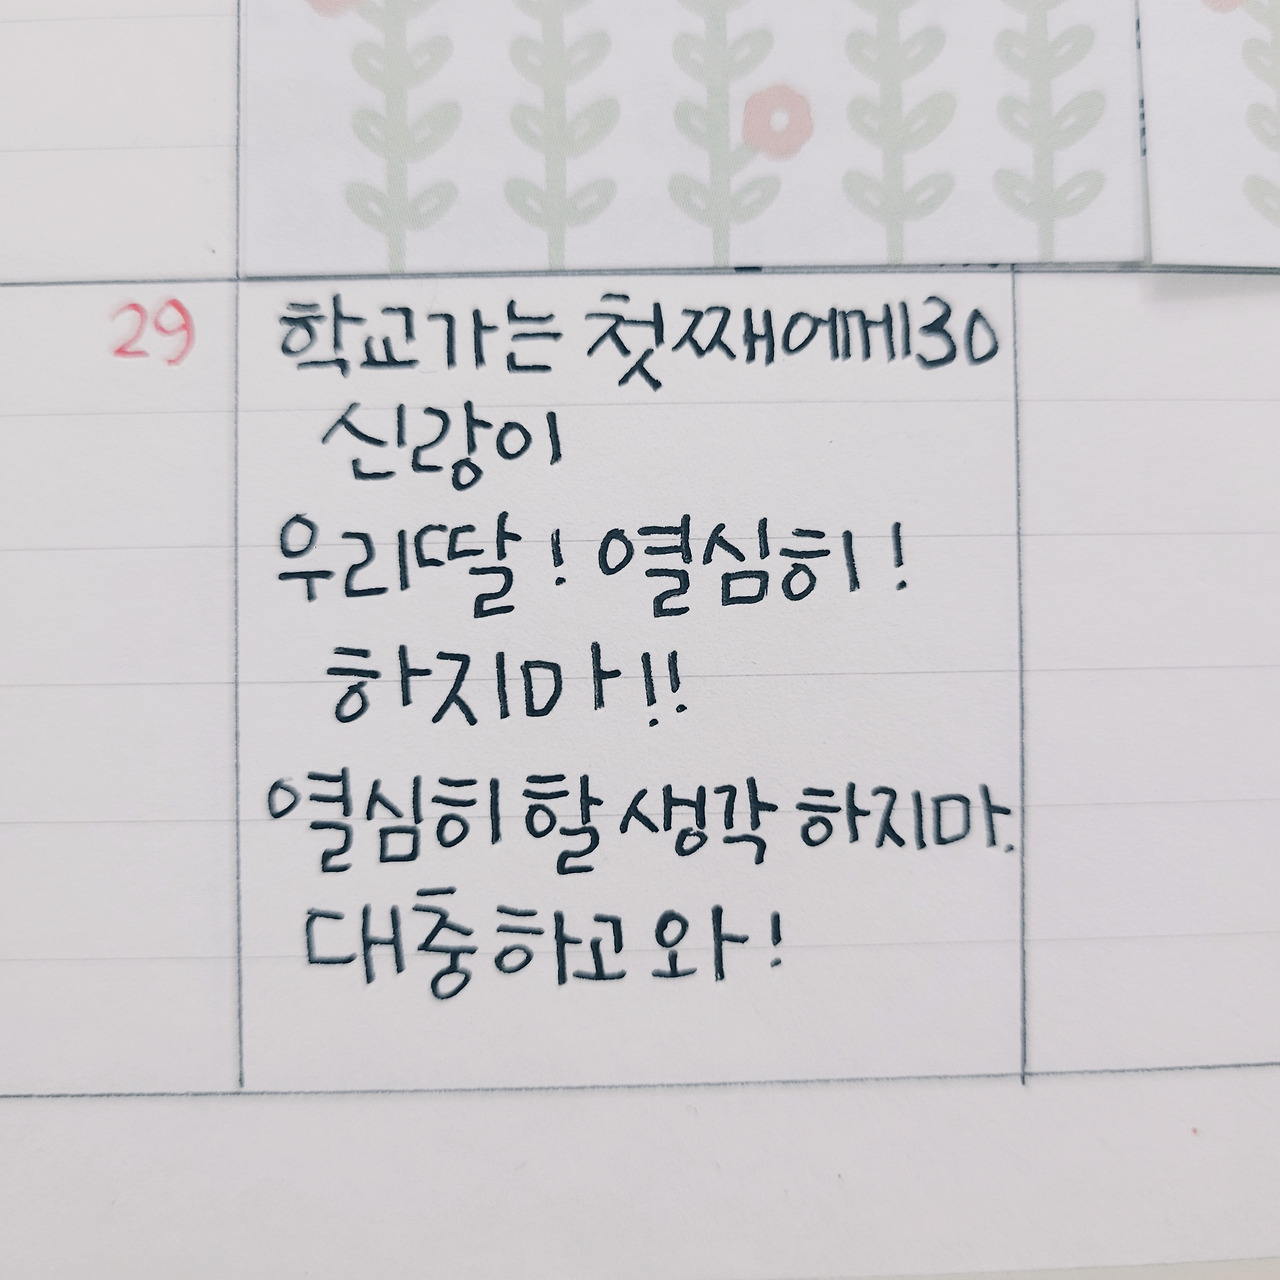 29
학교가는 첫째에게
신랑이
우리딸! 열심히!
하지마!!
열심히 할 생각 하지마.
대충하고 와!